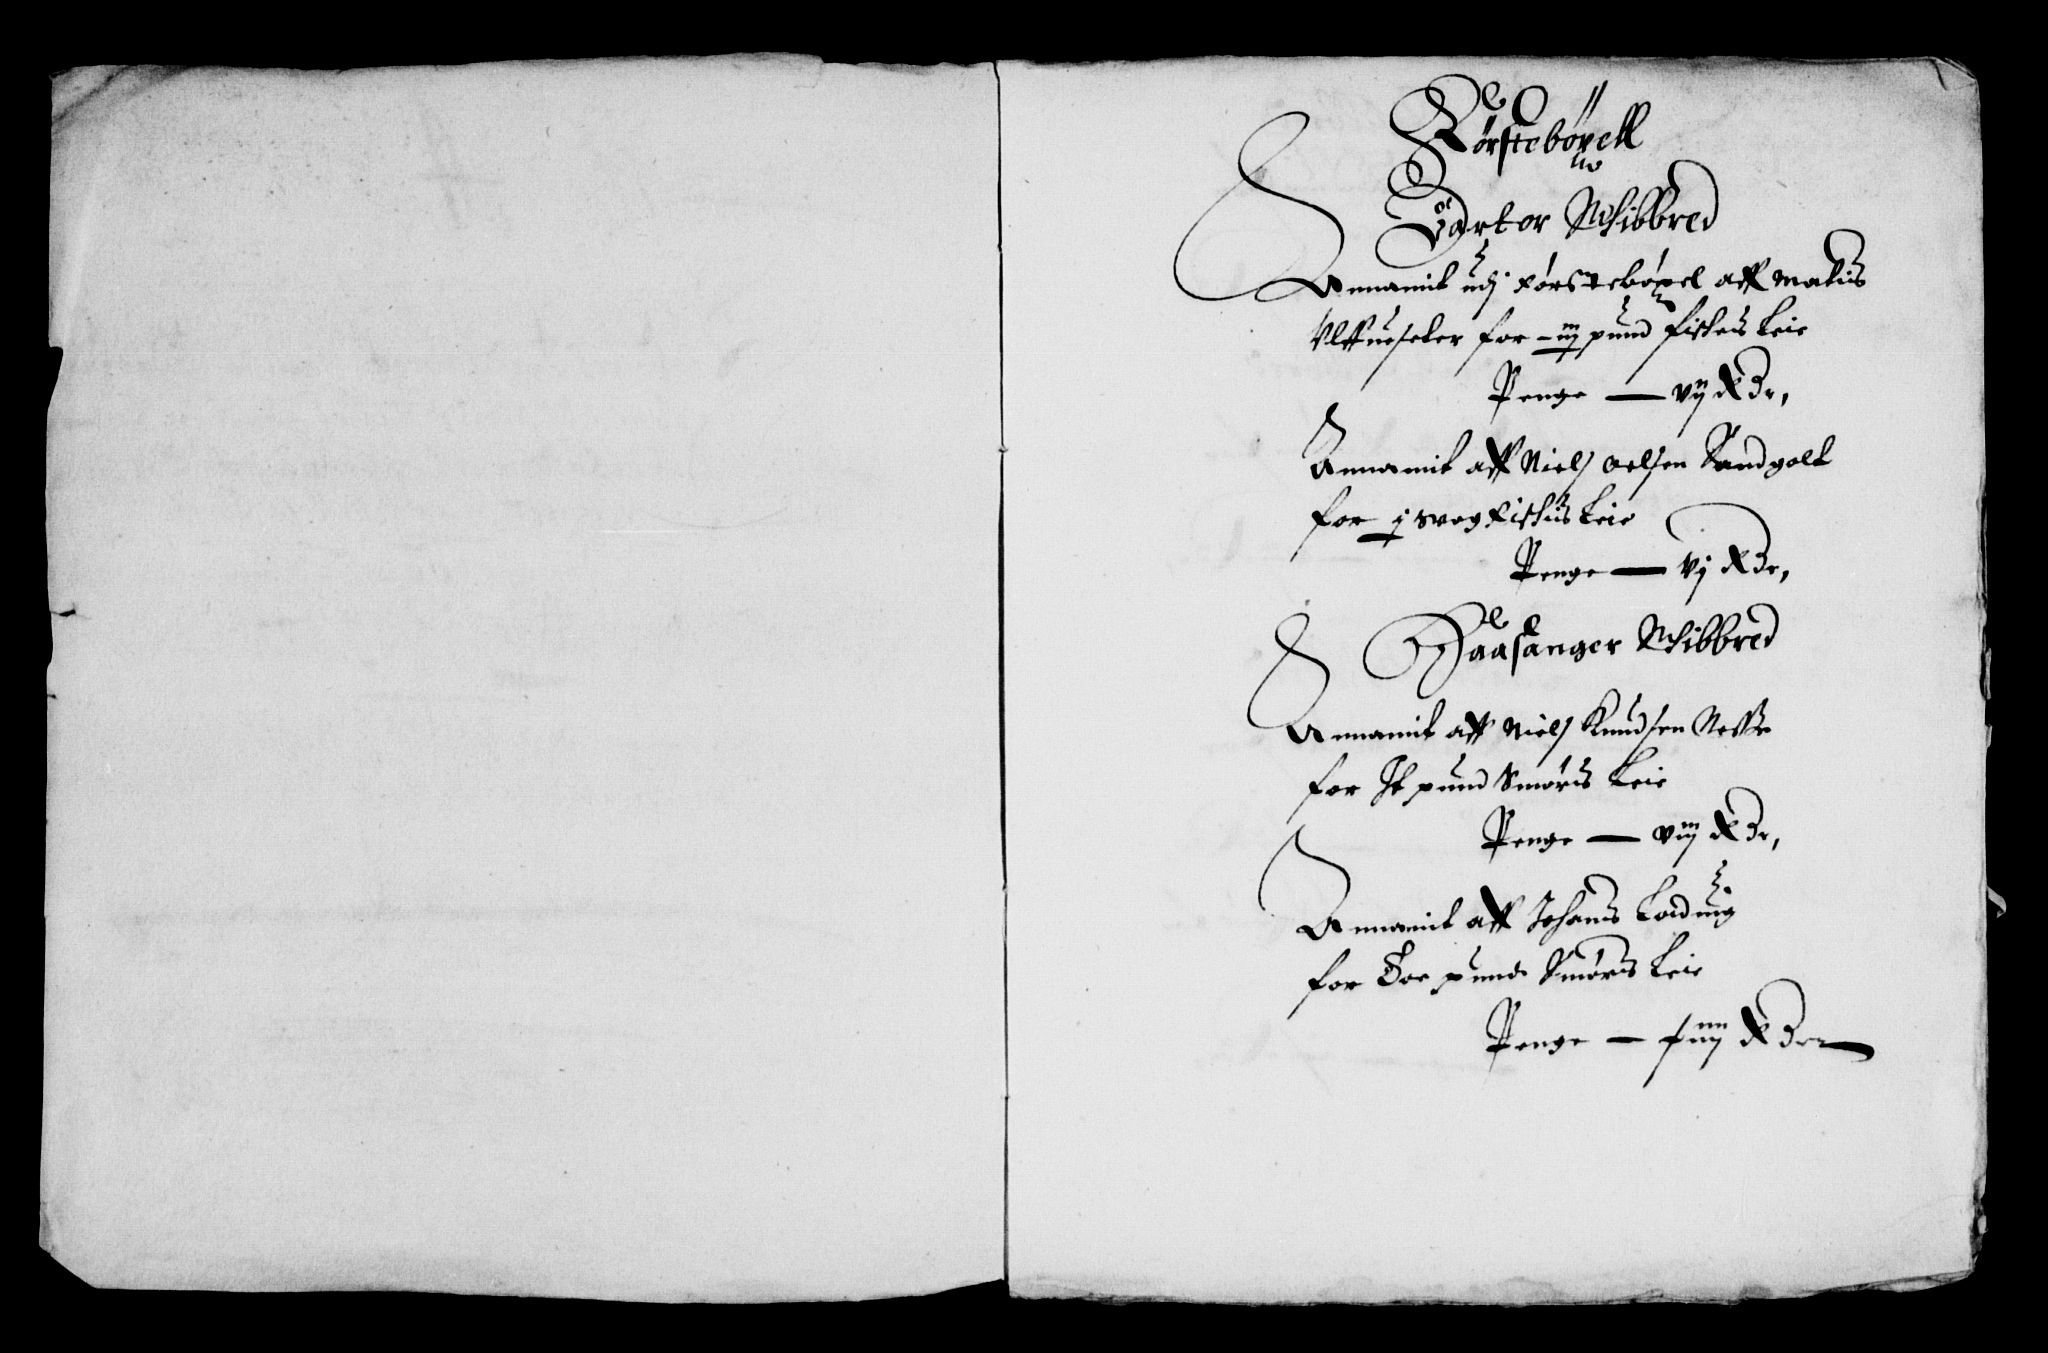 Førstebøxell
uv
Echtor Schibbred
Annamit udjførstebøxel aff Matis
Ulffueseter for - iij pund fiskeis Leie
Penge — vij Rdr,
Annamit aff Niels Oelsen Sandgolt
for j waag fiskis Leie
Penge — vj Rdr,
Haasanger Schibbred
Annamit aff Niels Knudsen Nesse
for It pund Smørs Leie
Penge — viij Rdr,
Annamit aff Johanis Loduig
for Toe pund Smørs Leie
Penge — Rdr